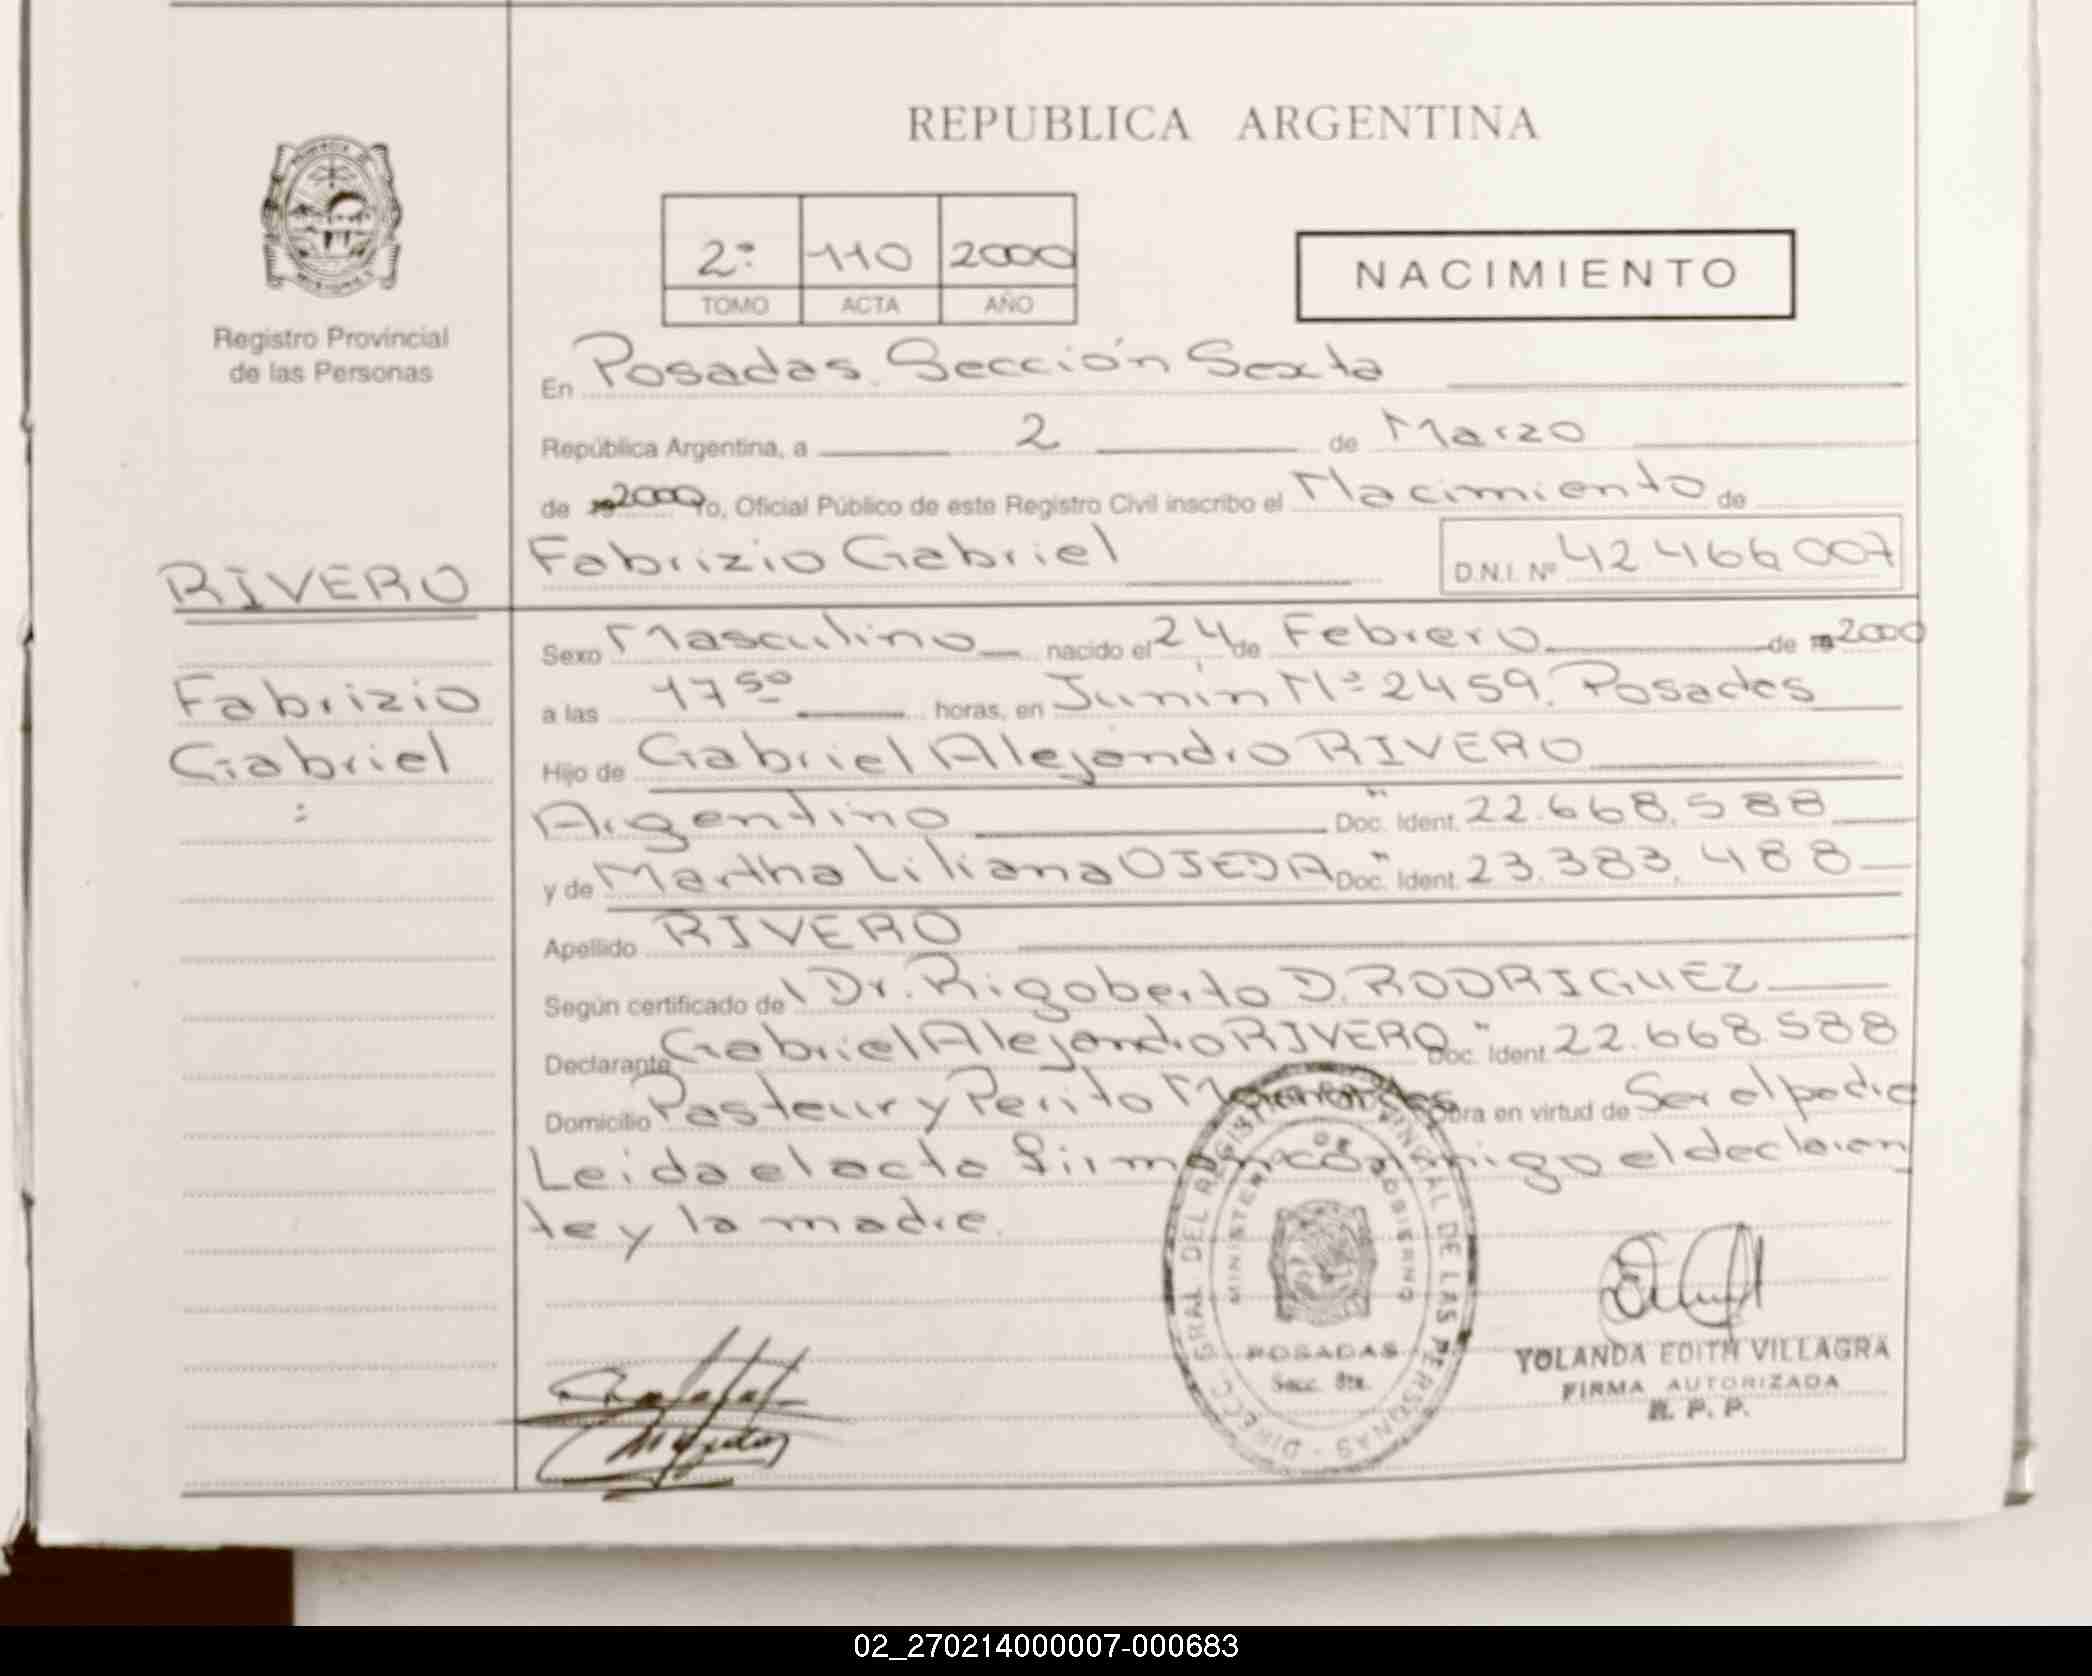 REPUBLICA ARGENTINA
2º 110 2000
TOMO ACTA AÑO
NACIMIENTO
Registro Provincial
de las Personas
En Posadas. Sección Sexta
República Argentina, a 2 de Marzo
de 2000 Yo, Oficial Público de este Registro Civil inscribo el Nacimiento de
RIVERO
Fabrizio Gabriel D.N.I. Nº 42 466 007
Fabrizio
Gabriel
Sexo Masculino nacido el 24 de Febrero de 2000
a las 17 50 horas, en Junin Nº 2459. Posadas
Hijo de Gabriel Alejandro RIVERO
Argentino Doc. Ident. 22.668.588
y de Martha Liliana OJEDA Doc. Ident. 23.383.488
Apellido RIVERO
Según certificado de Dr. Rigoberto D. RODRIGUEZ
Declarante Gabriel Alejandro RIVERO Doc. Ident. 22.668.588
Domicilio Pasteur y Perito Obra en virtud de Ser el padre
Leida el acta firman conmigo el declaran
te y la madre.
DIRECC. GRAL. DEL REGISTRO PROVINCIAL DE LAS PERSONAS
MINISTERIO DE GOBIERNO
POSADAS
Secc. 6ta.
YOLANDA EDITH VILLAGRA
FIRMA AUTORIZADA
R. P. P.
02_270214000007-000683